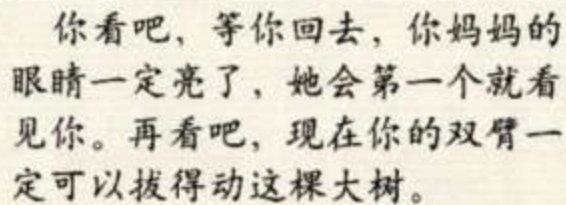 你看吧，等你回去，你妈妈的
眼睛一定亮了，她会第一个就看
见你。再看吧，现在你的双臂一
定可以拔得动这棵大树。